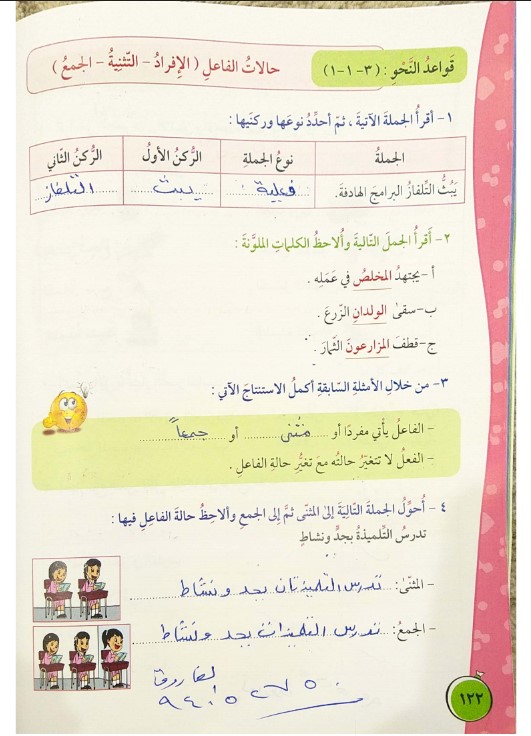 قَواعدُ النَّحْوِ : (٣-١-١)
حالاتُ الفاعلِ ( الإفرادُ - التّثنِيةُ - الجمعُ )
١- أقرأُ الجملةَ الآتيةَ ، ثمّ أحدِّدُ نوعَها وركنَيها :
الجملةُ نوعُ الجملةِ الرّكنُ الأولُ الرّكنُ الثّاني
يَبُثُّ التِّلفازُ البرامجَ الهادفةَ. فعلية يبث التلفاز
٢- أَقرأُ الجملَ التّاليةَ وأُلاحظُ الكلماتِ الملوَّنةَ :
أ- يجتهدُ المخلصُ في عَمَلِه .
ب- سقىٰ الولدانِ الزّرعَ .
ج- قطفَ المزارعونَ الثّمارَ .
٣- من خلالِ الأمثلةِ السّابقةِ أكملُ الاستنتاجَ الآتي :
- الفاعلُ يأتي مفردًا أو مثنى أو جمعاً
- الفعلُ لا تتغيّرُ حالتُه معَ تغيُّرِ حالةِ الفاعلِ .
٤- أُحوِّلُ الجملةَ التّاليَةَ إلىٰ المثنّى ثمَّ إلىٰ الجمعِ وأُلاحظُ حالةَ الفاعلِ فيها :
تدرسُ التّلميذةُ بجدٍّ ونشاطٍ
- المثنّىٰ: تدرس التلميذتان بجد ونشاط
- الجمعُ: تدرس التلميذات بجد ونشاط
١٢٢